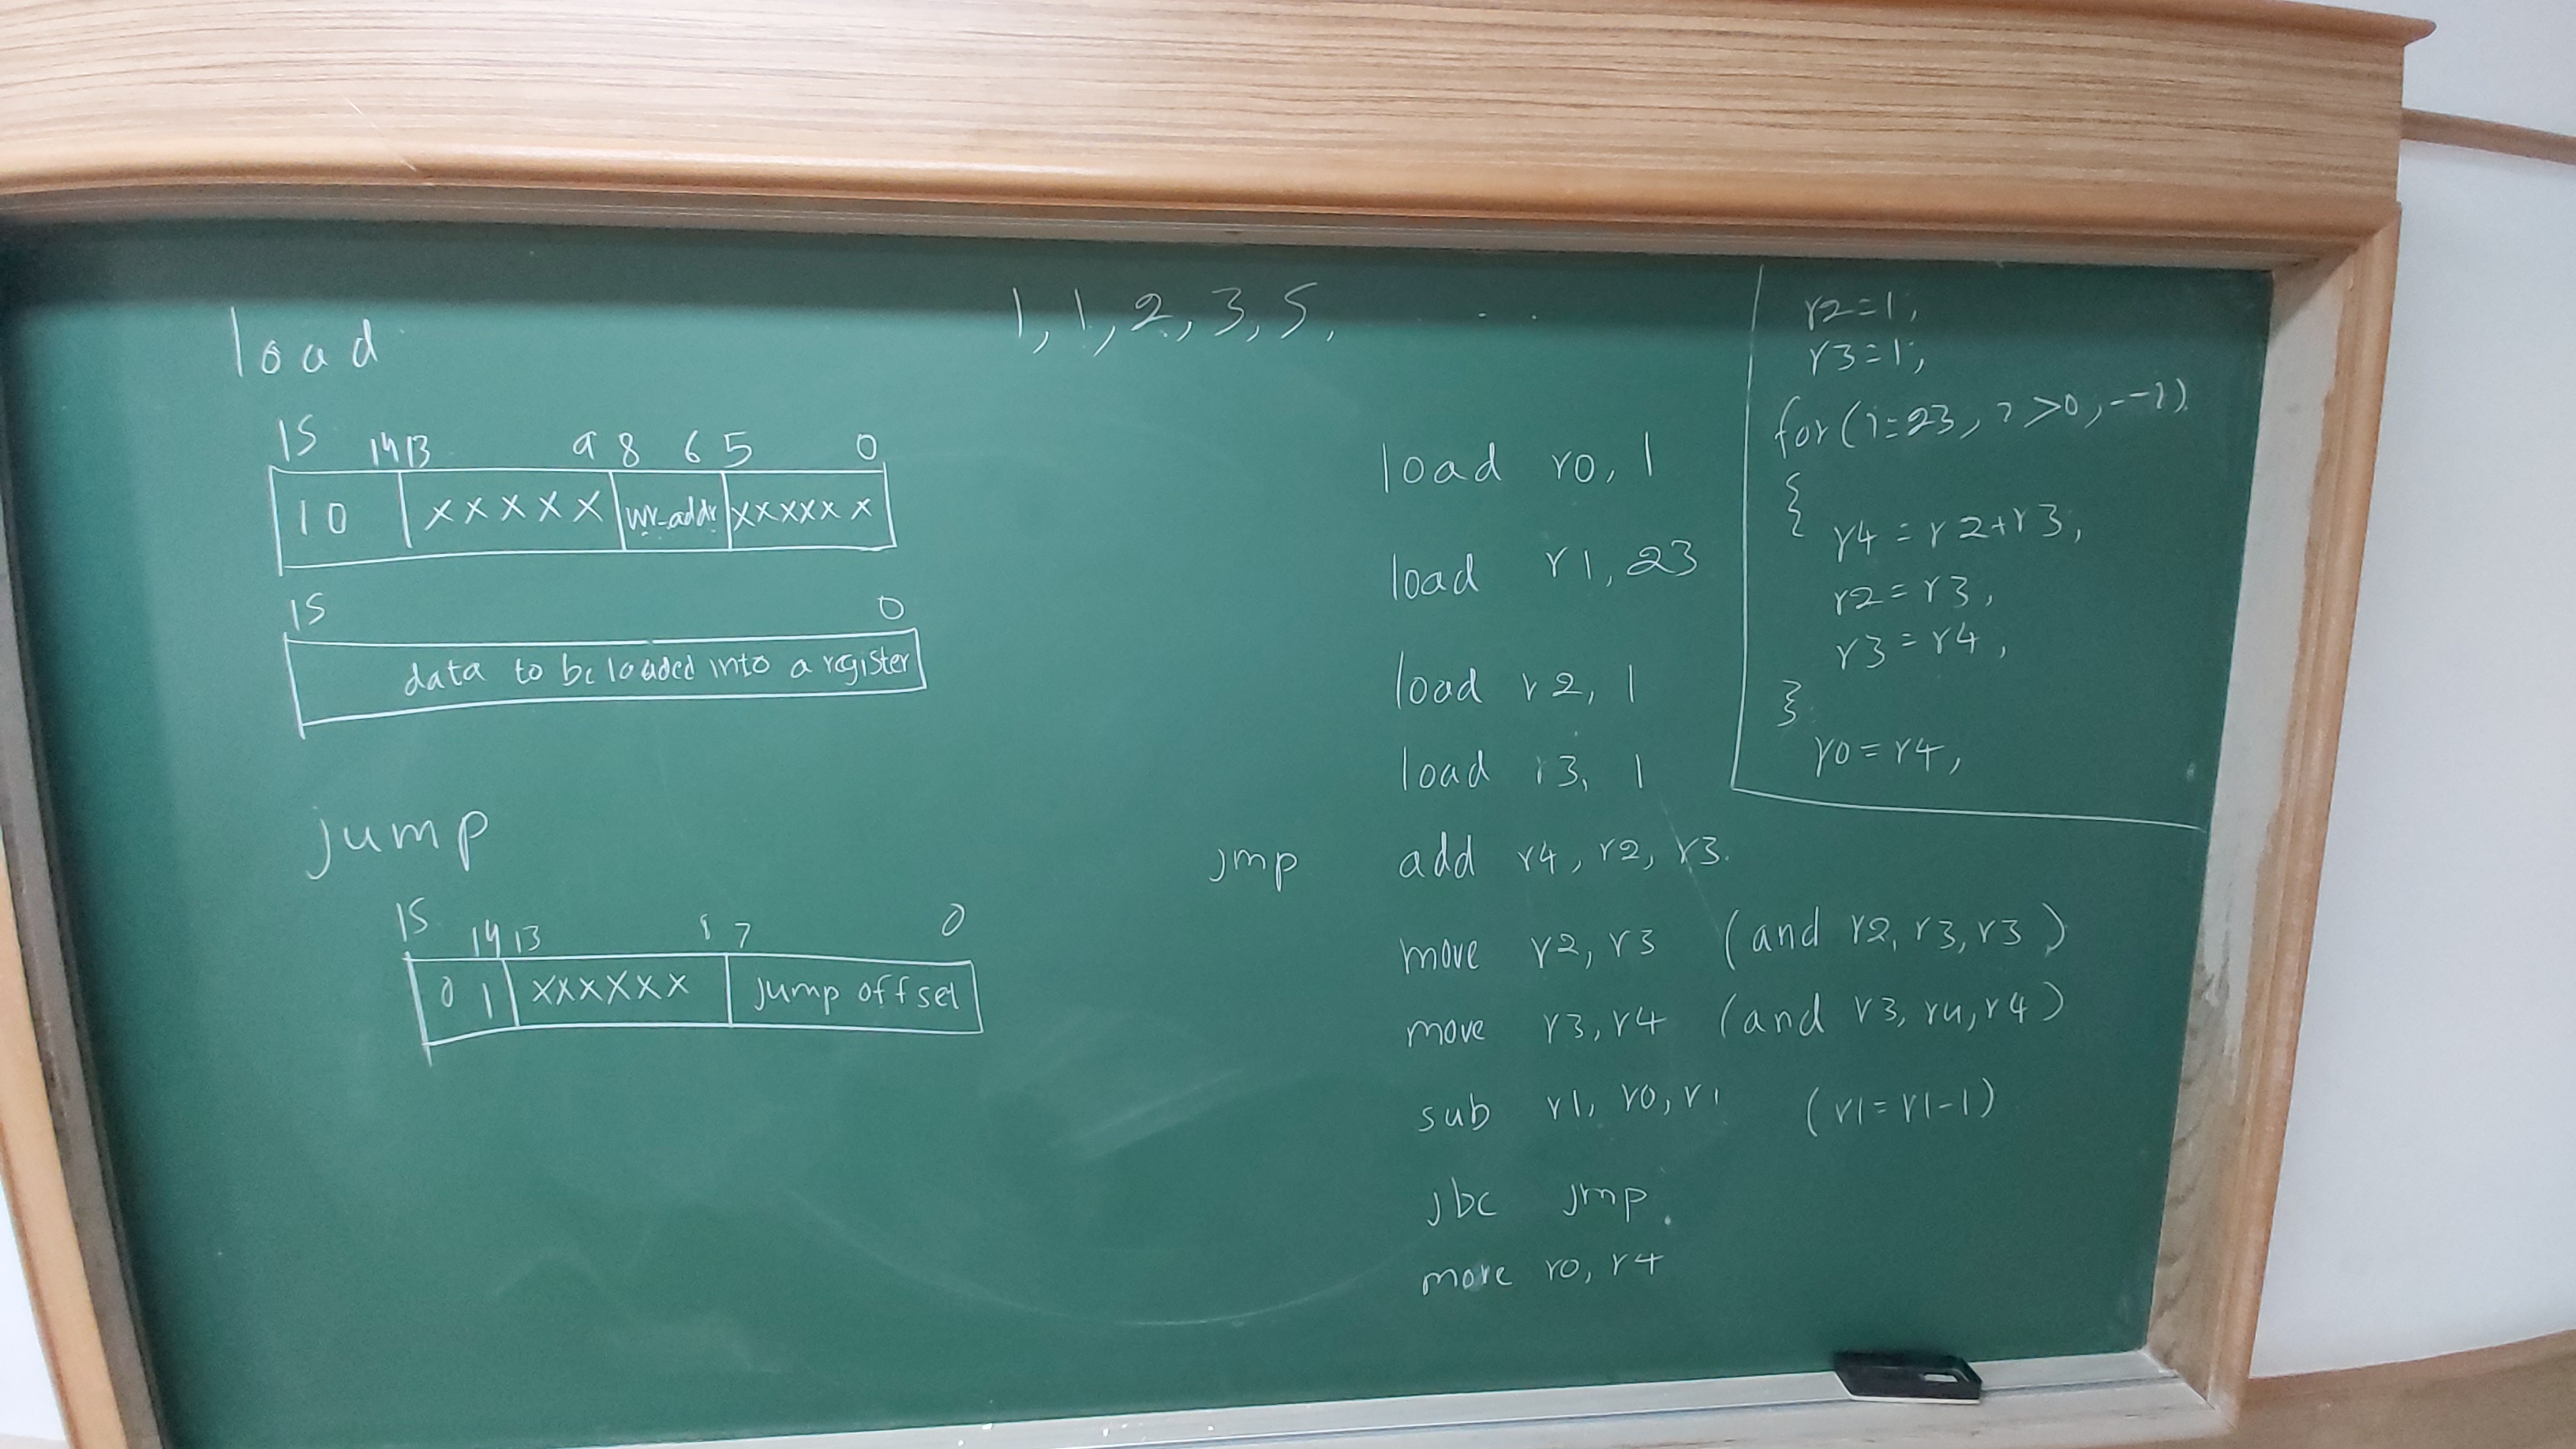 load
15 14 13 9 8 6 5 0
10 xxxxx wr_addr xxxxxx
15 0
data to be loaded into a register
jump
15 14 13 8 7 0
0 1 xxxxxx jump offset
1, 1, 2, 3, 5, ...
load r0, 1
load r1, 23
load r2, 1
load r3, 1
jmp add r4, r2, r3.
move r2, r3 (and r2, r3, r3)
move r3, r4 (and r3, r4, r4)
sub r1, r0, r1 (r1=r1-1)
jbc jmp.
move r0, r4
r2=1;
r3=1;
for(i=23, i>0, --i)
{
r4=r2+r3;
r2=r3;
r3=r4;
}
r0=r4;